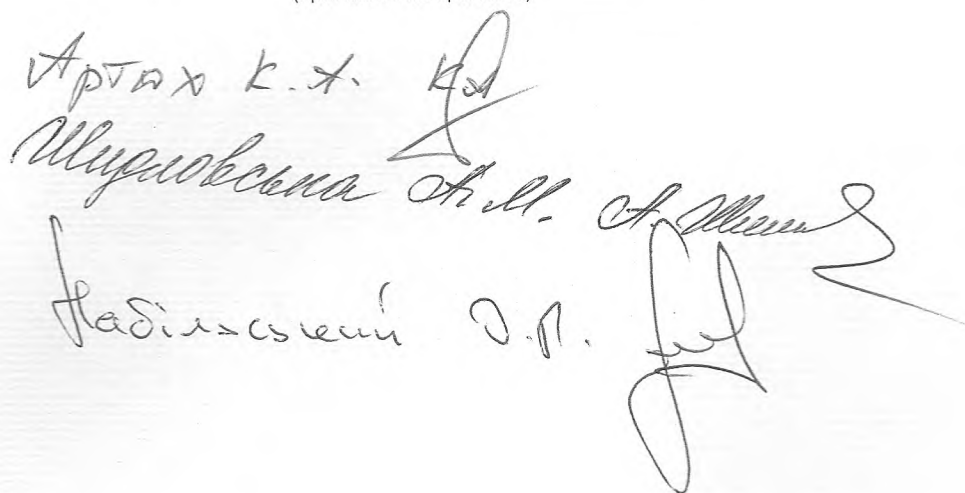 Артюх К.А.
Шидловська А.М. А. Ши
Набільський О.Л.